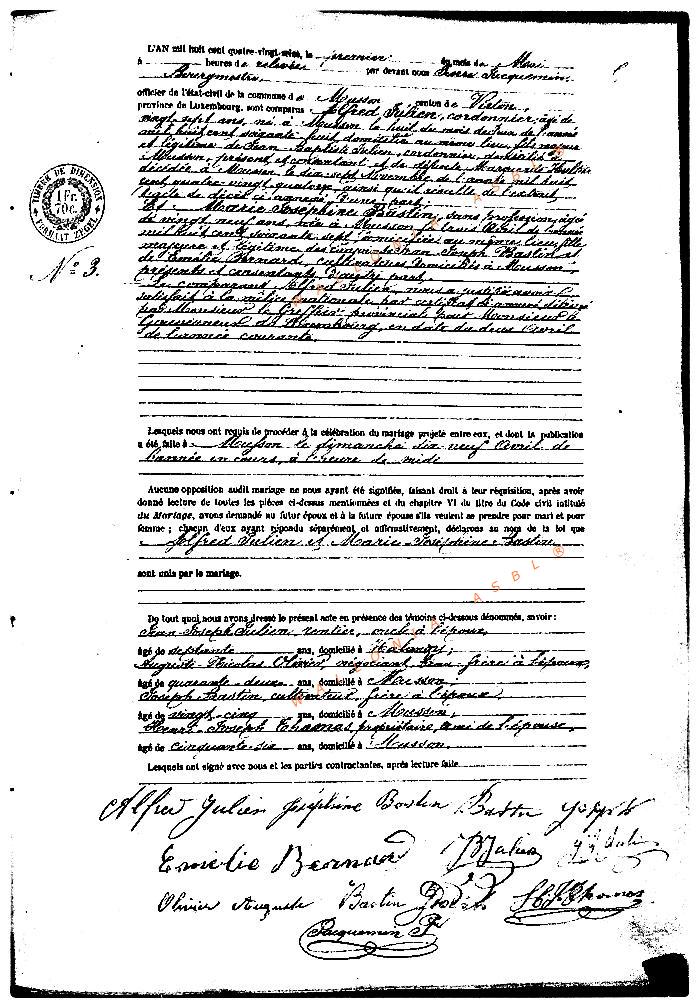 L'AN mil huit cent quatre-vingt-seize, le premier du mois de Mai
à heures de relevée par devant nous Pierre Jacquemin,
Bourgmestre
officier de l'état-civil de la commune de Musson canton de Virton,
province de Luxembourg, sont comparus Alfred Julien, cordonnier, âgé de
vingt sept ans, né à Musson le huit du mois de de l'année
mil huit cent soixante huit domicilié au même lieu, fils majeur
et légitime de Jean Baptiste Julien, cordonnier, domicilié à
Musson, présent et consentant et de défunte Marguerite
décédée à Musson, le dix sept Novembre de l'année mil huit
cent quatre vingt quatorze ainsi qu'il résulte de l'extrait
de décès ci annexé, d'une part,
Et Marie Josephine Bastin, sans profession, âgée
de vingt neuf ans, née à Musson le trois Avril de l'année
mil huit cent soixante sept domiciliée au même lieu, fille
majeure et légitime des conjoints Jean Joseph Bastin et
de Emélie Bernard, cultivateurs, domiciliés à Musson,
présents et consentants d'autre part.
Le comparant Alfred Julien, nous a justifié avoir
satisfait à la milice nationale par certificat ci annexé délivré
par Monsieur le Greffier provincial pour Monsieur le
Gouverneur du Luxembourg, en date du deux Avril
de l'année courante.
TIMBRE DE DIMENSION
1 Fr.
70 c.
FORMAAT ZEGEL
N° 3.
Lesquels nous ont requis de procéder à la célébration du mariage projeté entre eux, et dont la publication
a été faite à Musson le dimanche dix neuf Avril de
l'année en cours, à l'heure de midi
Aucune opposition audit mariage ne nous ayant été signifiée, faisant droit à leur réquisition, après avoir
donné lecture de toutes les pièces ci-dessus mentionnées et du chapitre VI du titre du Code civil intitulé
du Mariage, avons demandé au futur époux et à la future épouse s'ils veulent se prendre pour mari et pour
femme ; chacun d'eux ayant répondu séparément et affirmativement, déclarons au nom de la loi que
Alfred Julien et Marie Josephine Bastin
sont unis par le mariage.
De tout quoi nous avons dressé le présent acte en présence des témoins ci-dessous dénommés, savoir :
Jean Joseph Julien rentier, oncle à l'époux,
âgé de septante ans, domicilié à Halanzy;
Auguste Nicolas Olivier, négociant, beau frère à l'époux,
âgé de quarante deux ans, domicilié à Musson,
Joseph Bastin, cultivateur, frère à l'épouse,
âgé de vingt cinq ans, domicilié à Musson,
Henri Joseph Thomas, propriétaire, ami de l'épouse,
âgé de cinquante-six ans, domicilié à Musson.
Lesquels ont signé avec nous et les parties contractantes, après lecture faite
Alfred Julien Joséphine Bastin Bastin Joseph
Emélie Bernard
Olivier Auguste Bastin
Jacquemin P.
WALLONIA ASBL ®